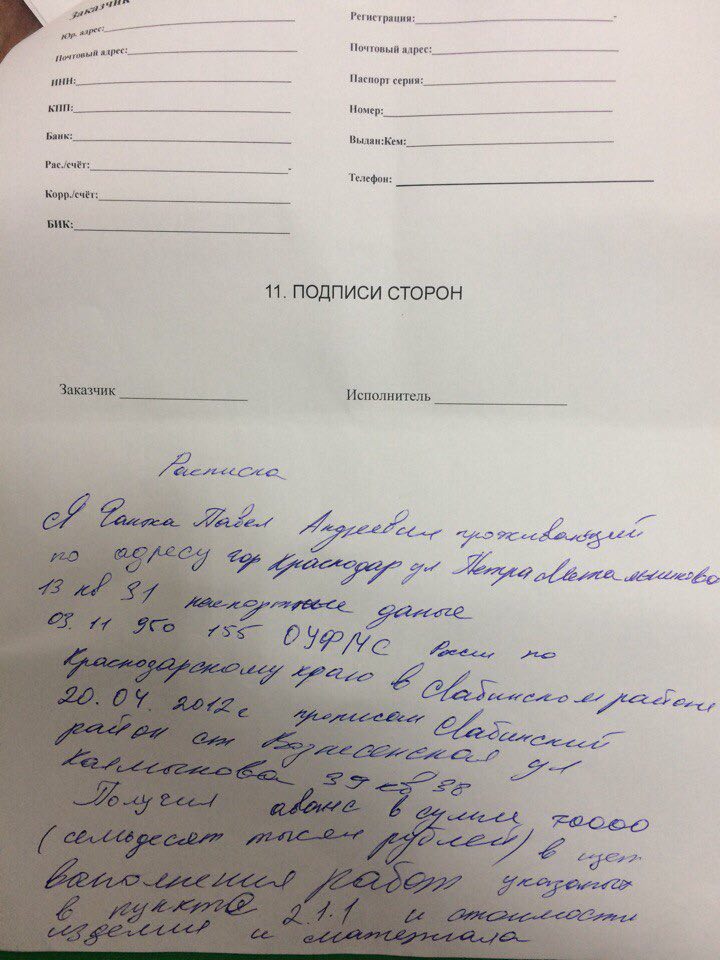 Заказчик
Юр. адрес:
Почтовый адрес:
ИНН:
КПП:
Банк:
Рас./счёт:
Корр./счёт:
БИК:
Регистрация:
Почтовый адрес:
Паспорт серия:
Номер:
Выдан:Кем:
Телефон:
11. ПОДПИСИ СТОРОН
Заказчик
Исполнитель
Расписка
Я Павел Андреевич проживающий
по адресу гор Краснодар ул Петра Метальникова
13 кв 31 паспортные даные
03. 11 950 155 ОУФМС России по
Краснодарскому краю в Лабинском районе
20. 04. 2012г прописан Лабинский
район ст Вознесенская ул
Калмыкова 39 кв 38
Получил аванс в сумме 70000
(семьдесят тысяч рублей) в щет
ваполнения работ указаных
в пункте 2.1.1 и стоимости
изделия и материала